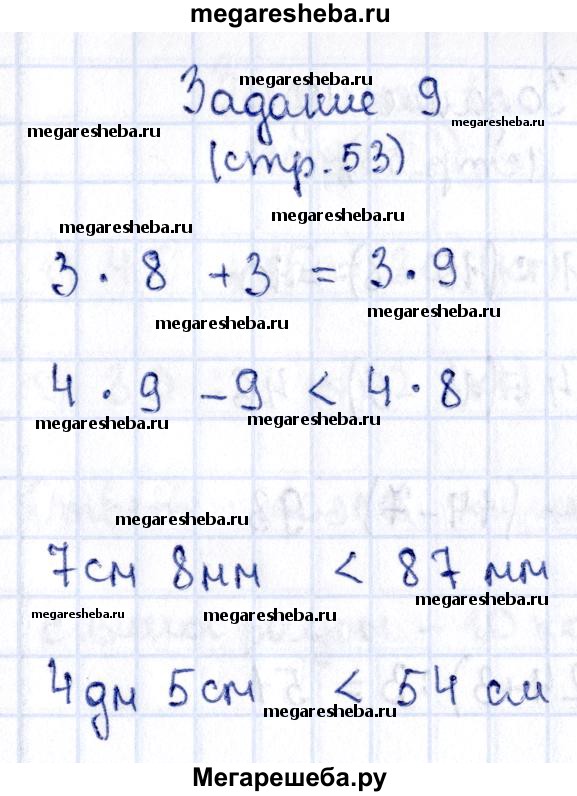 megaresheba.ru
megaresheba.ru
Задание 9
megaresheba.ru megaresheba.ru
(стр. 53)
megaresheba.ru
megaresheba.ru
3 · 8 + 3 = 3 · 9
megaresheba.ru
megaresheba.ru
4 · 9 - 9 < 4 · 8
megaresheba.ru megaresheba.ru
megaresheba.ru
7 см 8 мм < 87 мм
megaresheba.ru
megaresheba.ru megaresheba.ru
4 дм 5 см < 54 см
megaresheba.ru
Мегарешеба.ру